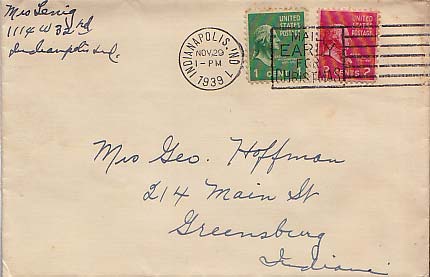 Mrs Lenig
1114 W 32nd
Indianapolis Ind.
INDIANAPOLIS, IND. 1
NOV 29
1-PM
1939
UNITED STATES POSTAGE
1
UNITED STATES POSTAGE
MAIL
EARLY
FOR
CHRISTMAS
Mrs Geo. Hoffman
214 Main St
Greensburg
Indiana